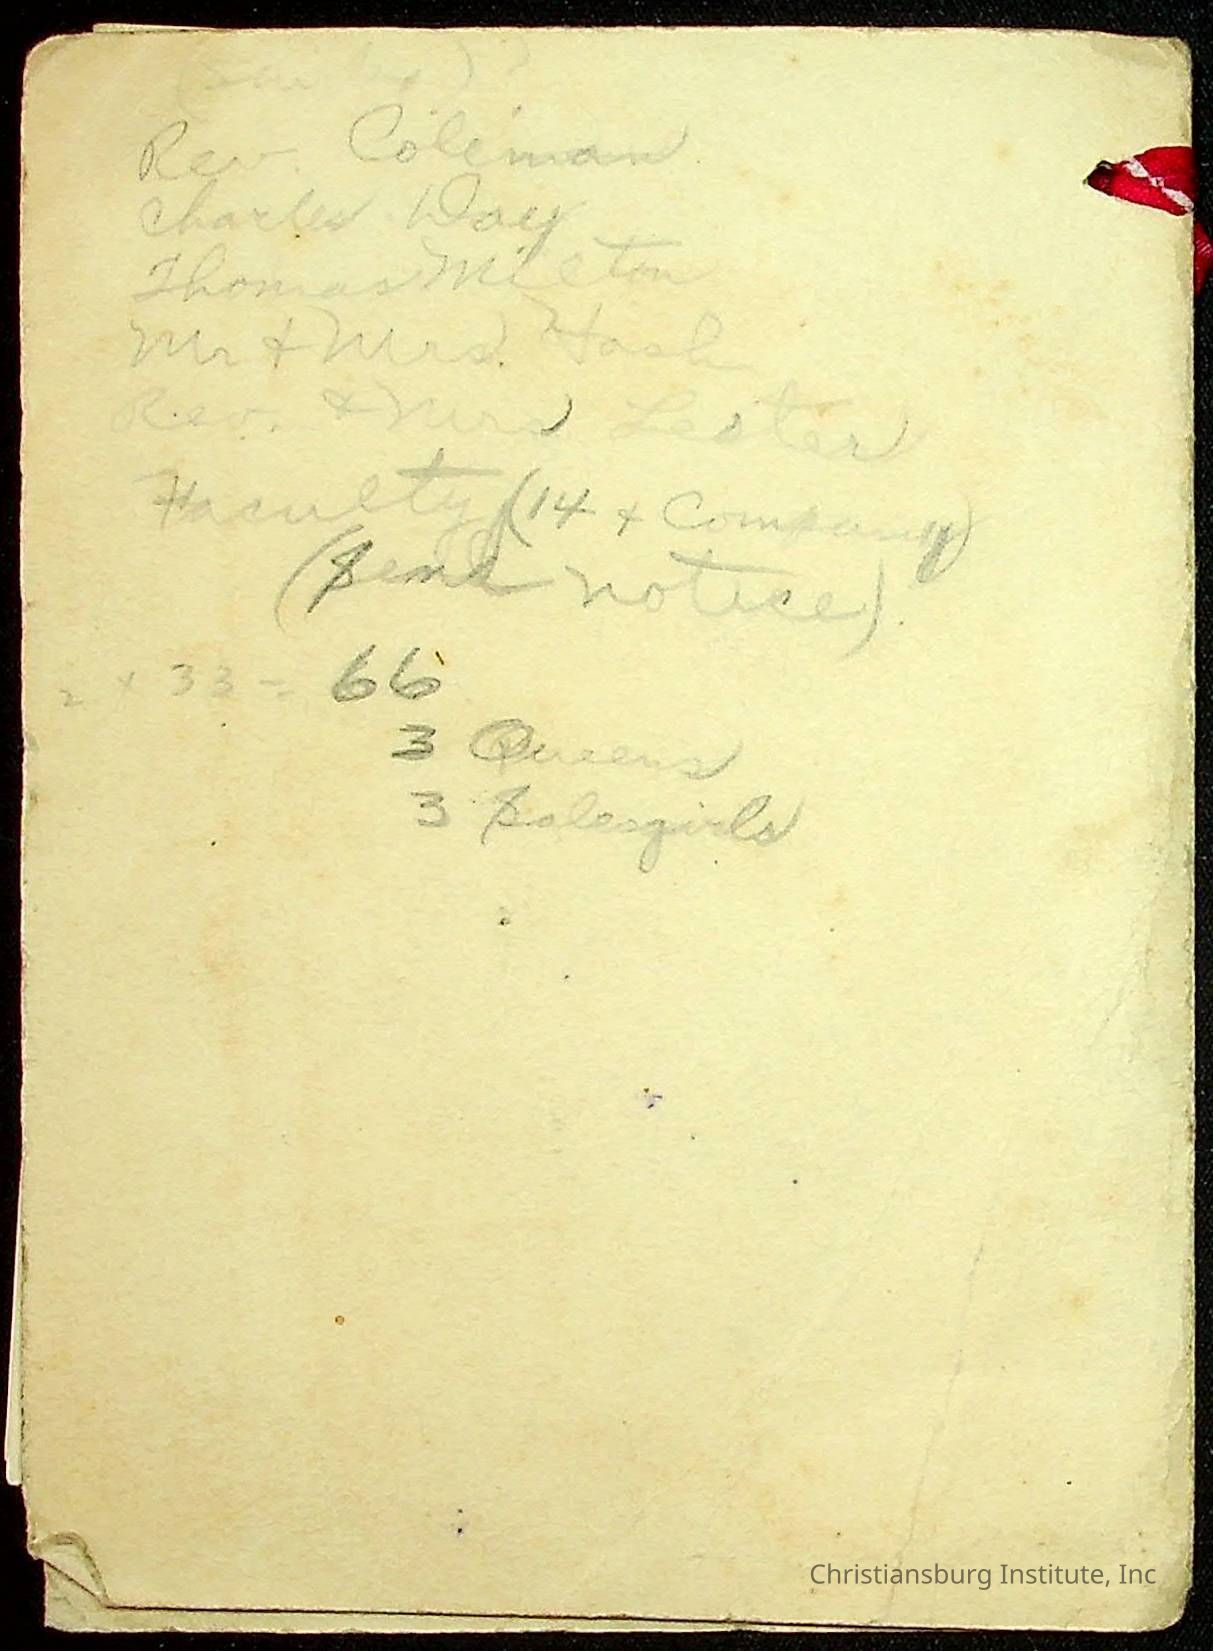 Rev. Coleman
Charles Day
Thomas Milton
Mr & Mrs. Hash
Rev. & Mrs Lester
Faculty (14 + Company)
(Send notice)
2 x 33 = 66
3 Queens
3 Salesgirls
Christiansburg Institute, Inc